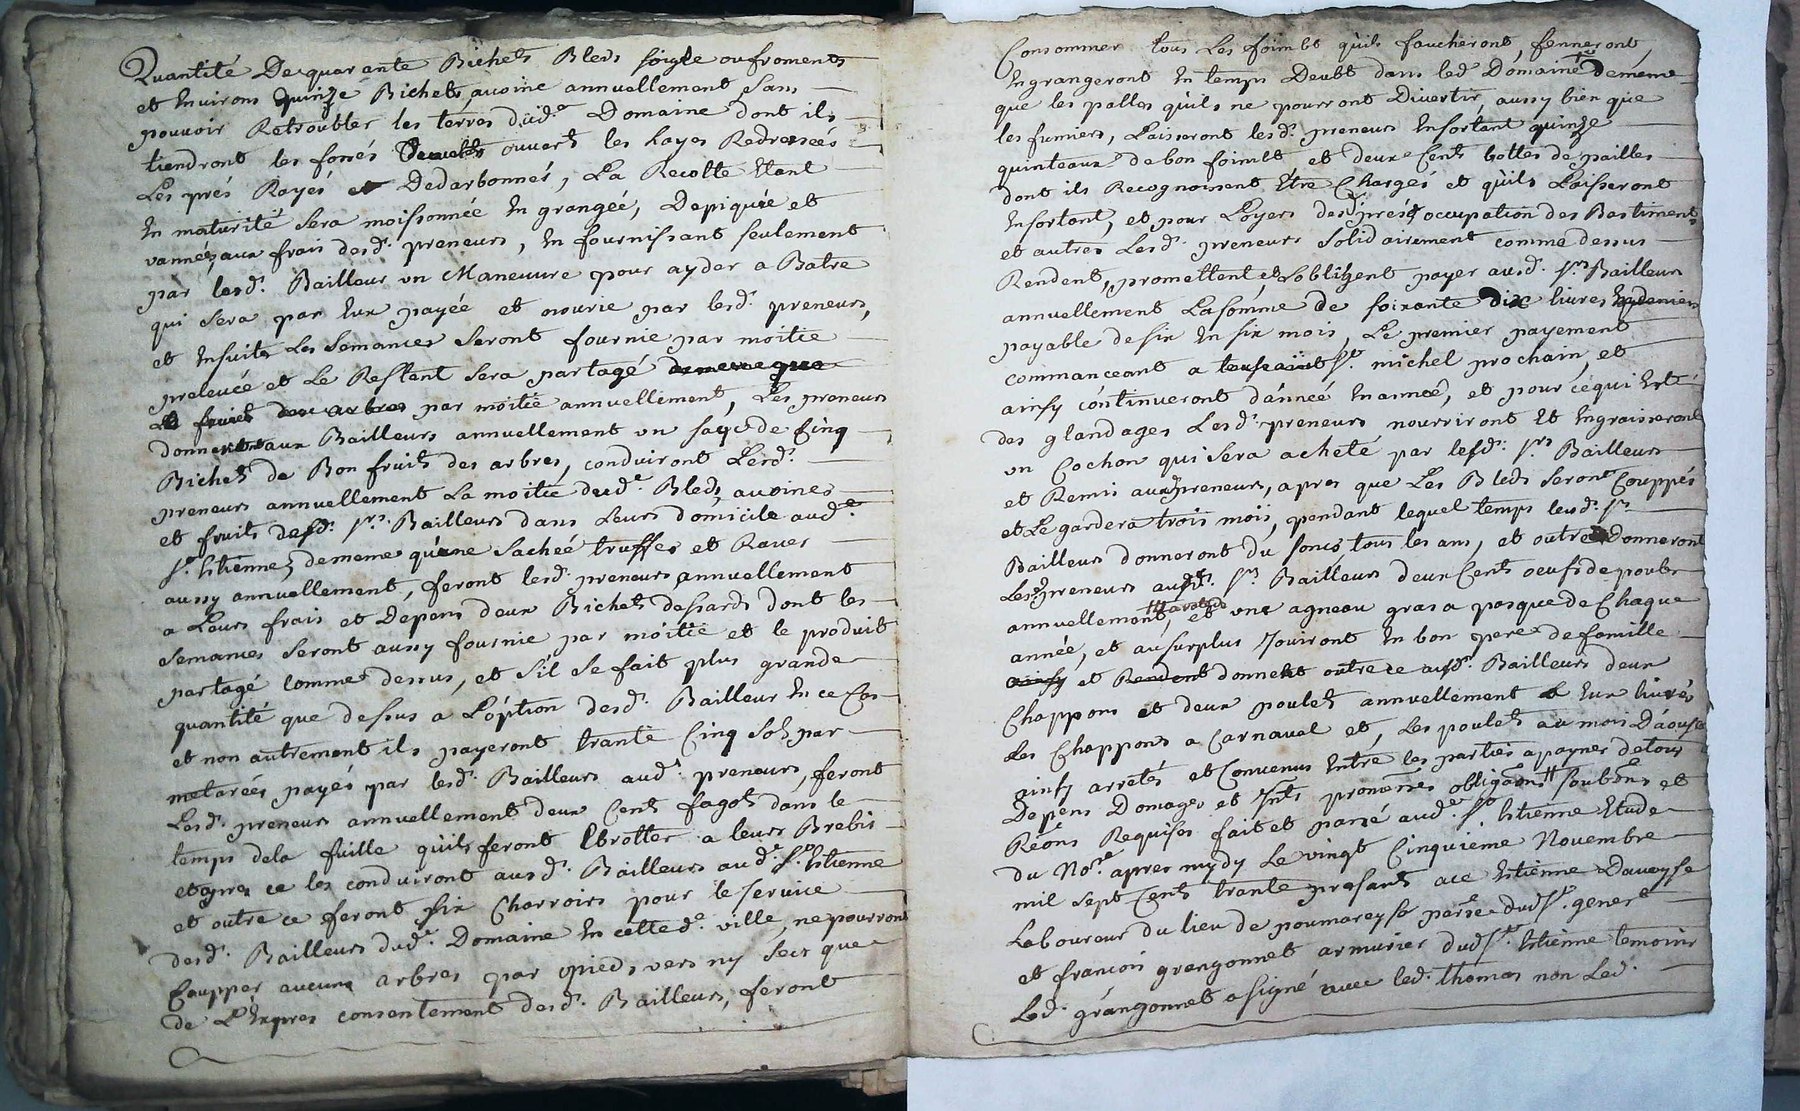 Quantité De quarante Bichets Bleds soigle ou froments
et Environs quinze Bichets avoine annuellement, sans
pouvoir Retroubler les terres dud.e Domaine dont ils
tiendront les fossés ouverts les hayes Redressées
Les prés Rayés et Dedarbonnés, La Recolte Etant
En maturité sera moissonnée En grangéé, Depiquée et
vannéé, aux frais desd. preneurs, En fournissant seulement
par lesd. Bailleur un Maneuvre pour ayder a Batre
qui sera par Eux payée et nourie par lesd. preneurs,
et Ensuites Les Semances seront fournie par moitié
prelevéé et Le Restent sera partagé
par moitié annuellement, Les preneurs
donneront aux Bailleurs annuellement un de Cinq
Bichets de Bon fruits des arbres, conduiront Lesd.
preneurs annuellement La moitié dud.e Bleds, avoines
et fruits desd. Srs. Bailleurs dans Leurs domicile aud.e
St Etienne, dememe qu'une Sachéé truffes et Raves
aussy annuellement, feront lesd. preneurs annuellement
a Leurs frais et Depens deux Bichets dessards dont les
semances seront aussy fournie par moitié et le produit
partagé comme dessus, et Sil se fait plus grande
quantité que dessus a Loption desd. Bailleur En ce Cas
et non autrement ils payeront trante Cinq Sols par
metarées payés par lesd. Bailleurs aud. preneurs, feront
Lesd. preneurs annuellement deux Cents fagots dans le
temps dela fuille qu'ils feront Ebrotter a leurs Brebis
et apres ce les conduiront ausd. Bailleurs aud.e St Etienne
et outre ce feront six Charroirs pour le service
desd. Bailleurs dud.e Domaine En cette d.e ville, ne pourront
Coupper aucuns arbres par pieds vers ny secs que
de L'Expres consentement desd. Bailleurs, feront
Consommer tous Les foimts qu'ils faucheront, fenneront,
Engrangeront En temps Deubt dans led. Domaine dememe
que les palles qu'ils ne pourront Divertir, aussy bien que
les fumiers, Laisseront lesd. preneurs Ensortant quinze
quinteaux de bon foimts et deux Cents bottes de pailles
dont ils Recognoissent Être Chargés et qu'ils Laisseront
Ensortant, et pour Loyers desd. prés & occupation des Bastiments
et autres Lesd. preneurs solidairement comme dessus
Rendent, promettent, et sobligent payer ausd. Srs Bailleurs
annuellement La somme de soixante Dix livres En deniers
payable de six En six mois, Le premier payement
commanceant a St. michel prochain, et
ainsy continueront d'année En année, et pour cequi Est
des glandages Lesd. preneurs nourriront Et Engraisseront
un Cochon qui sera acheté par lesd. Srs Bailleurs
et Remis aux preneurs, apres que Les Bleds seront Couppés
et Le gardera trois mois, pendant lequel temps lesd. Srs
Bailleurs donneront du tous les ans, et outre Donneront
Les preneurs ausd. Srs Bailleurs deux Cents oeufs de poules
annuellement, et une agneau gras a pasque de Chaque
année, et au surplus Jouiront En bon pere de famille
et donnent outre ce ausd. Bailleurs deux
Chappons et deux poulets annuellement Eux livrés
Les Chappons a Carnaval et, Les poulets au mois D'aoust
ainsy arretés et Convenus Entre les parties a payner de tous
Depens Domages et Jnts promesses obligaons soubons et
Reons Requises fait et passé aud.e St Etienne Etude
du No.re apres mydy Le vingt Cinquieme Novembre
mil sept Cents trante presents a ce Etienne Daveyse
Laboureur du lieu de poumareyse parse dud St. genest
et francois grangonnet armurier dud St. Etienne temoins
Led. grangonnet a signé avec led. thomas non Led.